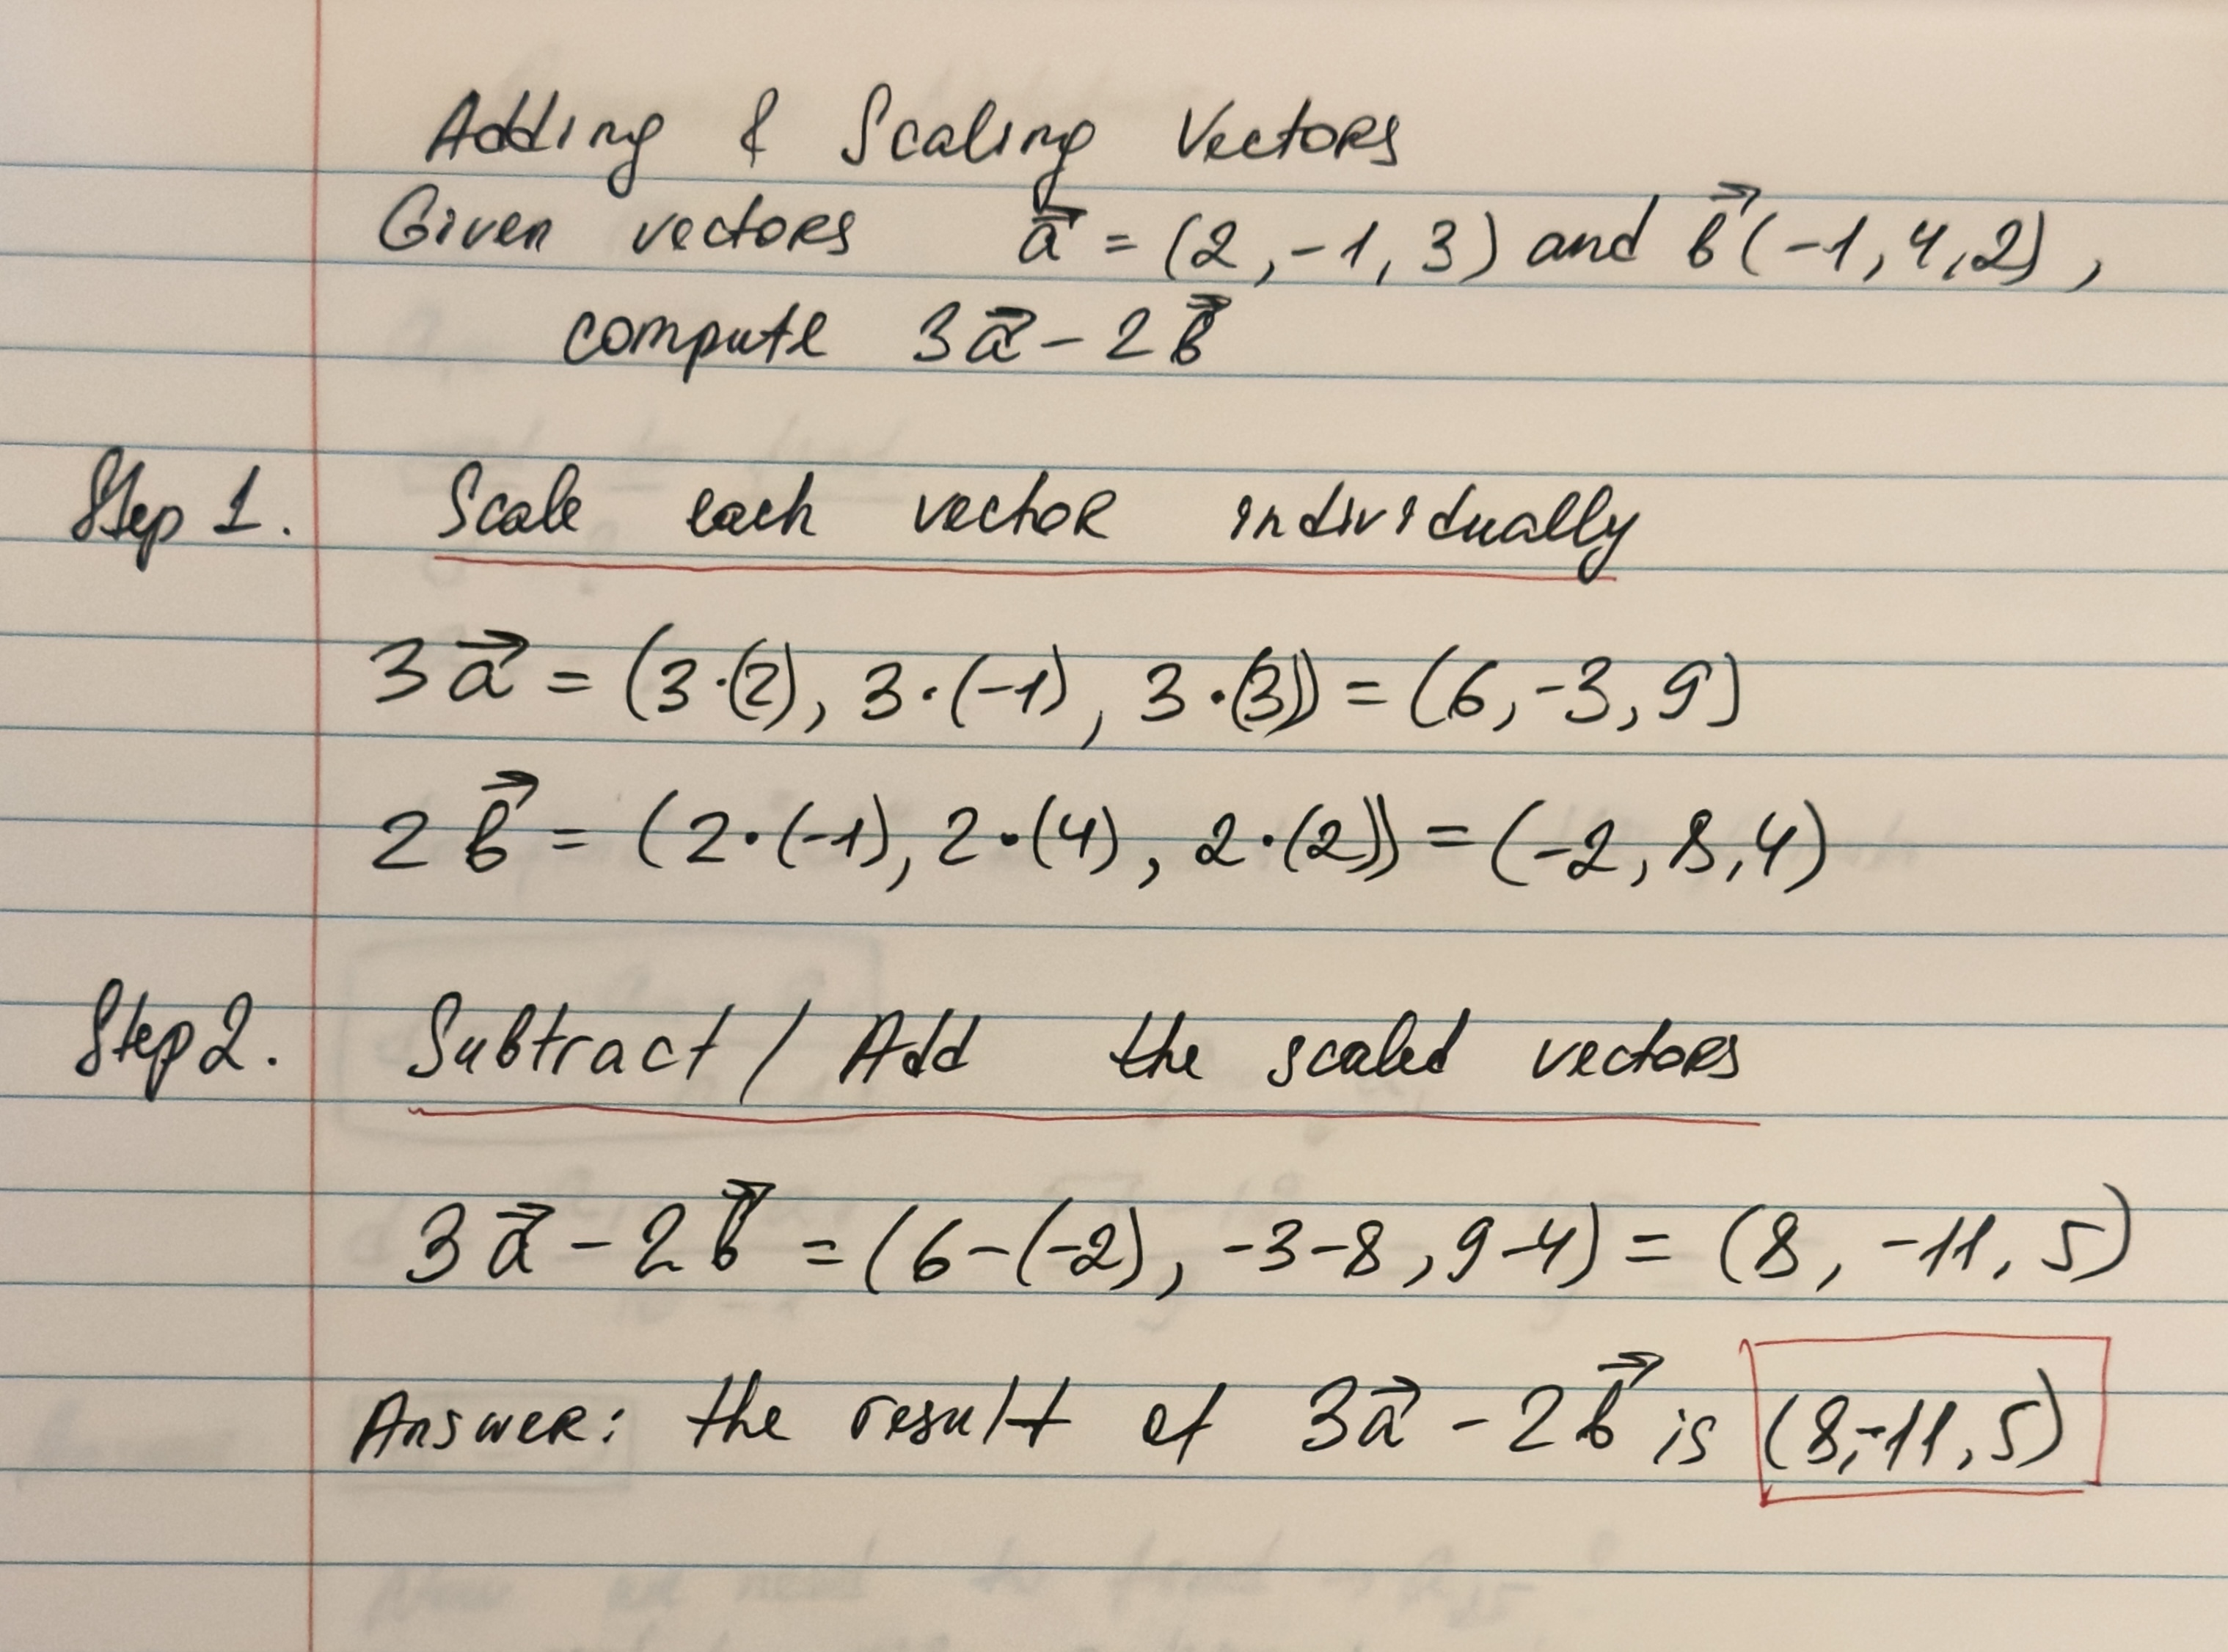 Adding & Scaling Vectors
Given vectors a⃗ = (2, -1, 3) and b⃗ (-1, 4, 2),
compute 3a⃗ - 2b⃗
Step 1. Scale each vector individually
3a⃗ = (3·(2), 3·(-1), 3·(3)) = (6, -3, 9)
2b⃗ = (2·(-1), 2·(4), 2·(2)) = (-2, 8, 4)
Step 2. Subtract / Add the scaled vectors
3a⃗ - 2b⃗ = (6-(-2), -3-8, 9-4) = (8, -11, 5)
Answer: the result of 3a⃗ - 2b⃗ is (8, -11, 5)